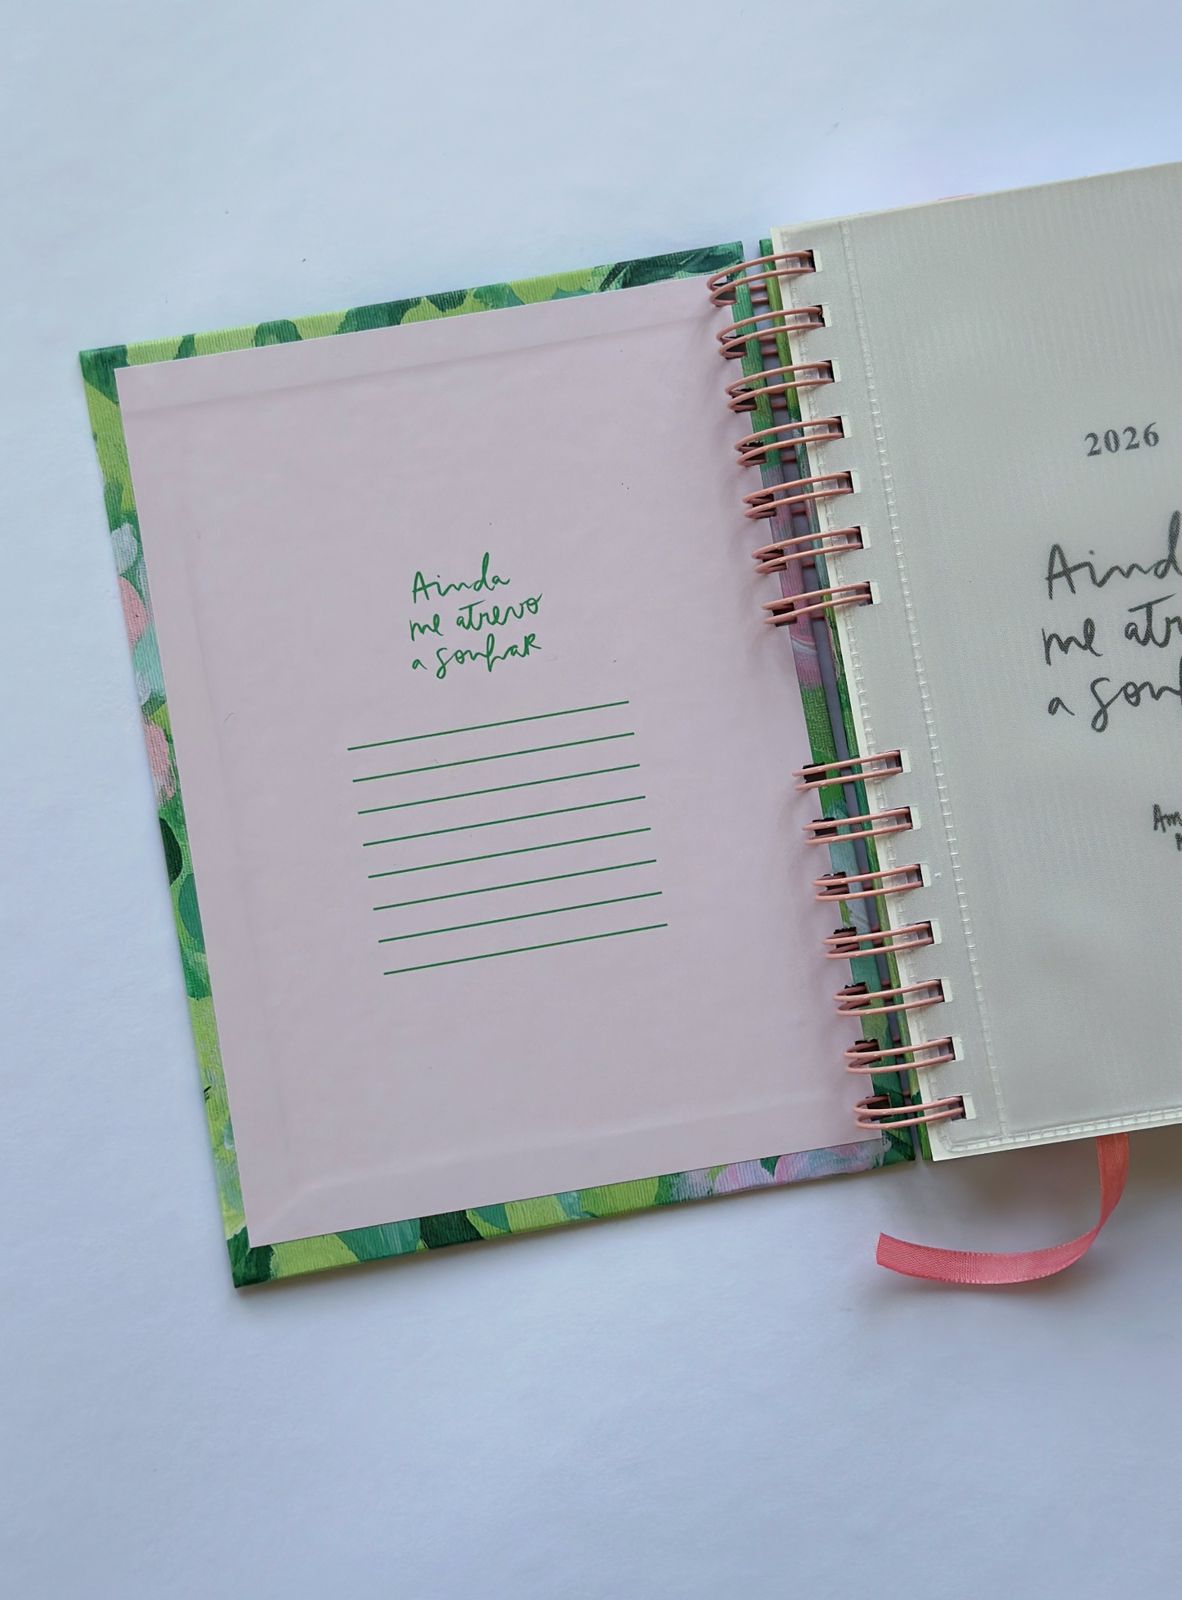 Ainda
me atrevo
a sonhar
2026
Aind
me atr
a son
Am